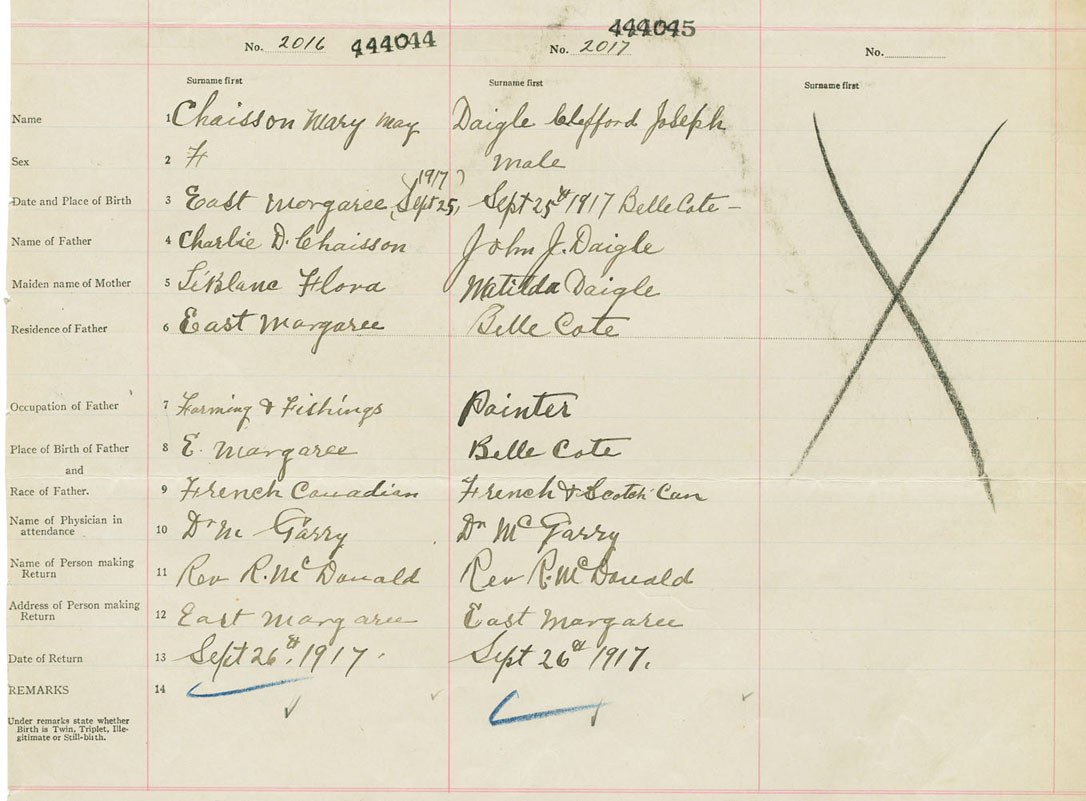 No. 2016 444044 No. 2017 444045 No.
Surname first Surname first Surname first
Name 1 Chaisson Mary May Daigle Clefford Joseph
Sex 2 F male
(1917)
Date and Place of Birth 3 East Margaree (Sept 25, Sept 25th 1917 Belle Cote –
Name of Father 4 Charlie D. Chaisson John J. Daigle
Maiden name of Mother 5 LeBlanc Flora Matilda Daigle
Residence of Father 6 East Margaree Belle Cote
Occupation of Father 7 Farming & Fishings Painter
Place of Birth of Father 8 E. Margaree Belle Cote
and
Race of Father. 9 French Canadian French & Scotch Can
Name of Physician in
attendance 10 Dr Mc Garry Dr Mc Garry
Name of Person making
Return 11 Rev R. McDonald Rev R. McDonald
Address of Person making
Return 12 East Margaree East Margaree
Date of Return 13 Sept 26th, 1917. Sept 26th 1917.
REMARKS 14
Under remarks state whether
Birth is Twin, Triplet, Ille-
gitimate or Still-birth.